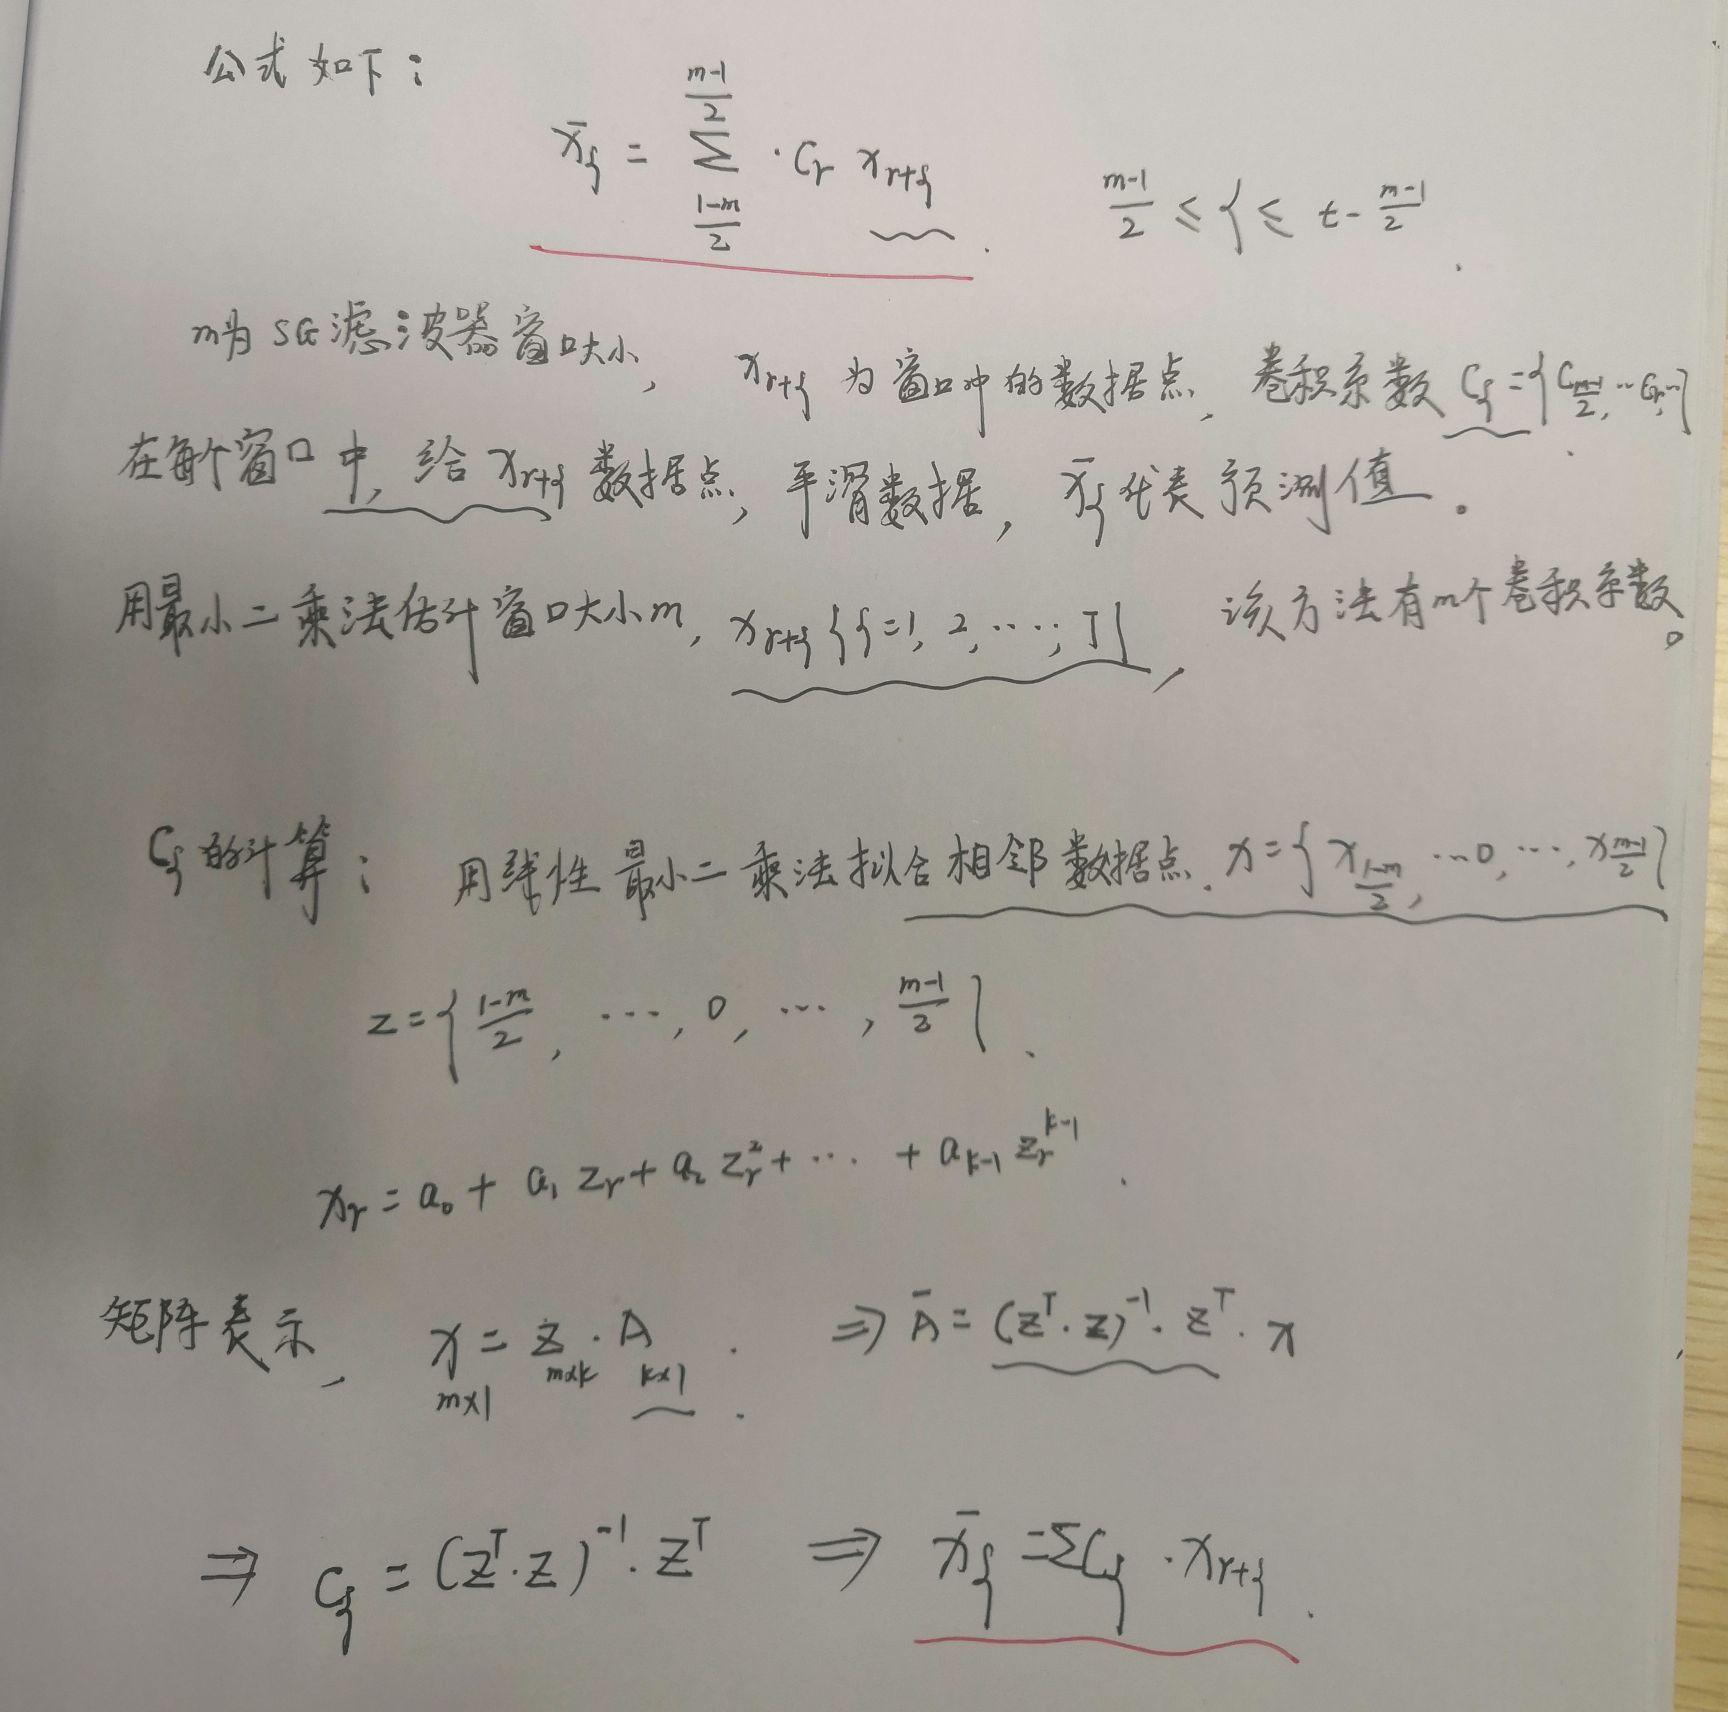 公式如下：
x̄ⱼ = Σ_{(1-m)/2}^{(m-1)/2} · Cᵣ x_{r+j} .    (m-1)/2 ≤ j ≤ t - (m-1)/2 .
m为SG滤波器窗口大小, x_{r+j} 为窗口中的数据点, 卷积系数 Cⱼ = {C_{(m-1)/2}, … Cᵣ, …}
在每个窗口中, 给 x_{r+j} 数据点, 平滑数据, x̄ⱼ 代表预测值。
用最小二乘法估计窗口大小m, x_{r+j} {j=1, 2, …, J} , 该方法有m个卷积系数。
Cⱼ 的计算： 用线性最小二乘法拟合相邻数据点. x = {x_{(1-m)/2}, … 0, …, x_{(m-1)/2}}
z = {(1-m)/2, …, 0, …, (m-1)/2} .
xᵣ = a₀ + a₁ zᵣ + a₂ zᵣ² + … + a_{k-1} zᵣ^{k-1} .
矩阵表示, x_{m×1} = z_{m×k} · A_{k×1} . ⇒ Ā = (zᵀ·z)⁻¹ · zᵀ · x
⇒ Cⱼ = (zᵀ·z)⁻¹ · zᵀ ⇒ x̄ⱼ = ΣCⱼ · x_{r+j} .